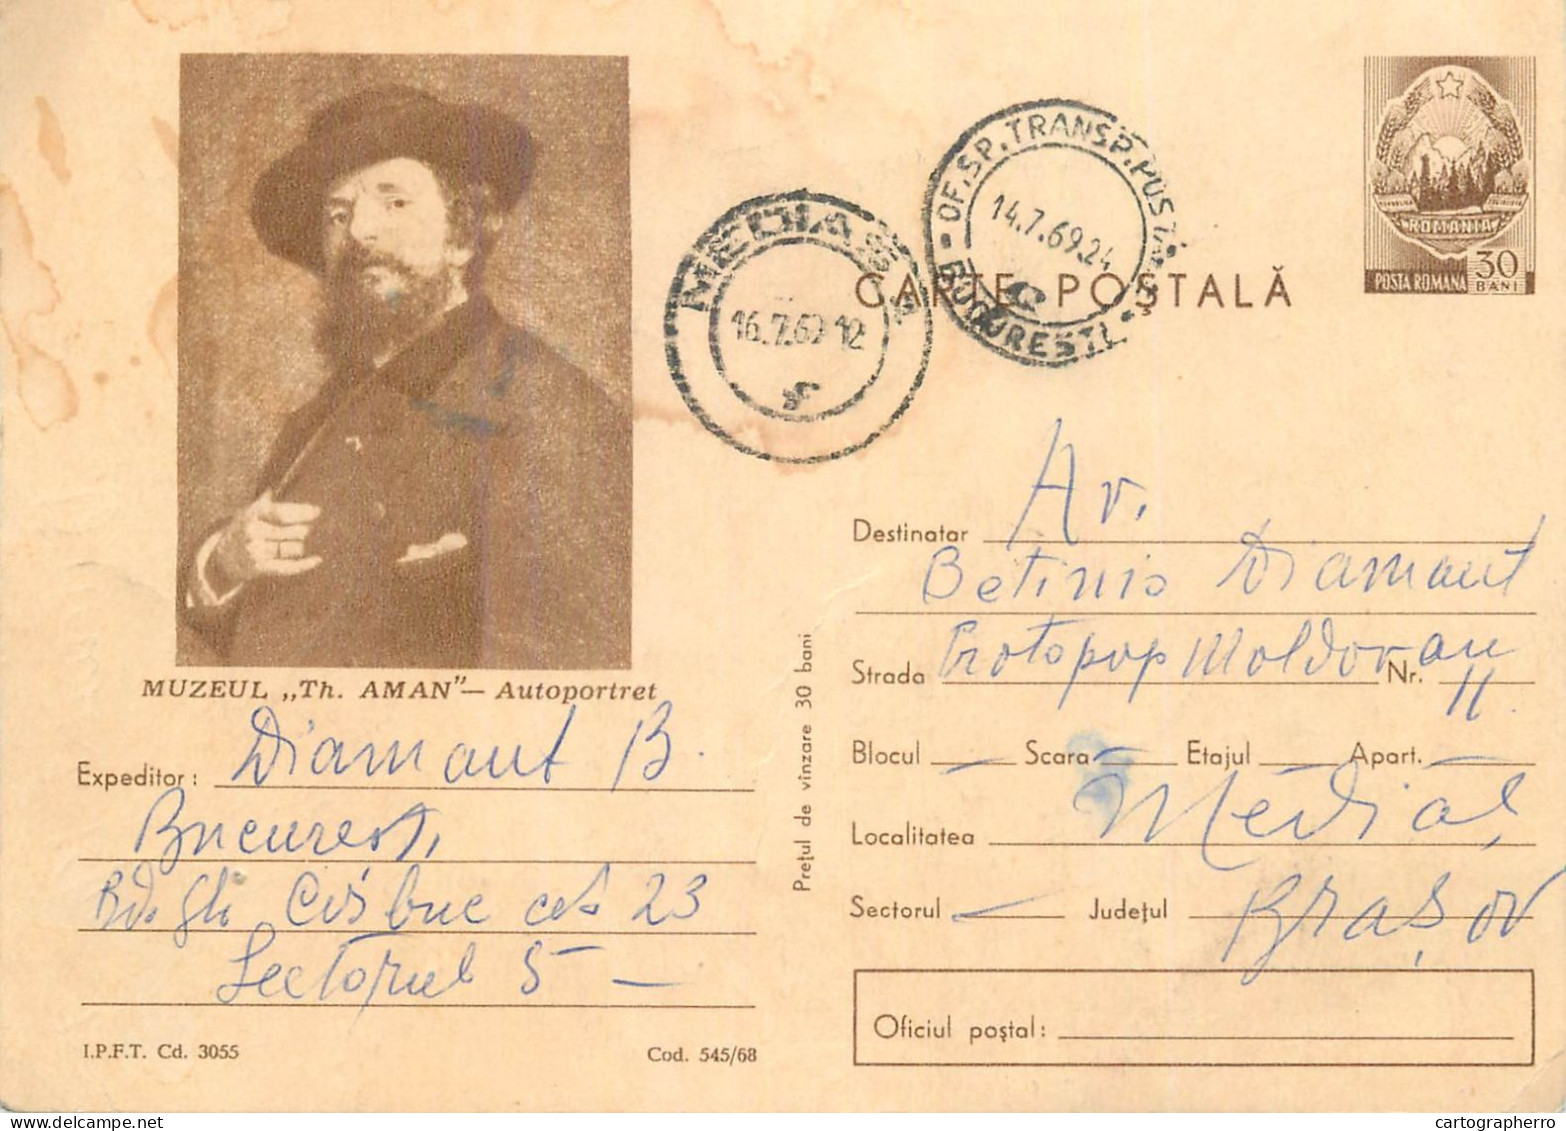 MUZEUL „Th. AMAN”— Autoportret
Expeditor: Diamant B.
București
Bd. Gh Coșbuc 23
Sectorul 5 —
I.P.F.T. Cd. 3055
Cod. 545/68
Prețul de vînzare 30 bani
MEDIAȘ
16.7.69 12
OF. SP. TRANSP. POSTA
14.7.69.24
BUCUREȘTI
CARTE POȘTALĂ
ROMANIA
POSTA ROMANA 30 BANI
Destinatar Av.
Betinio Diamant
Strada Protopop Moldovan Nr. 11
Blocul — Scara — Etajul — Apart. —
Localitatea Mediaș
Sectorul — Județul Brașov
Oficiul poștal:
cartographerro